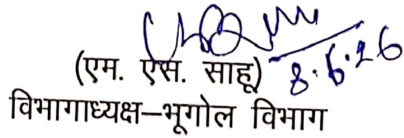 8.6.26
(एम. एस. साहू)
विभागाध्यक्ष–भूगोल विभाग